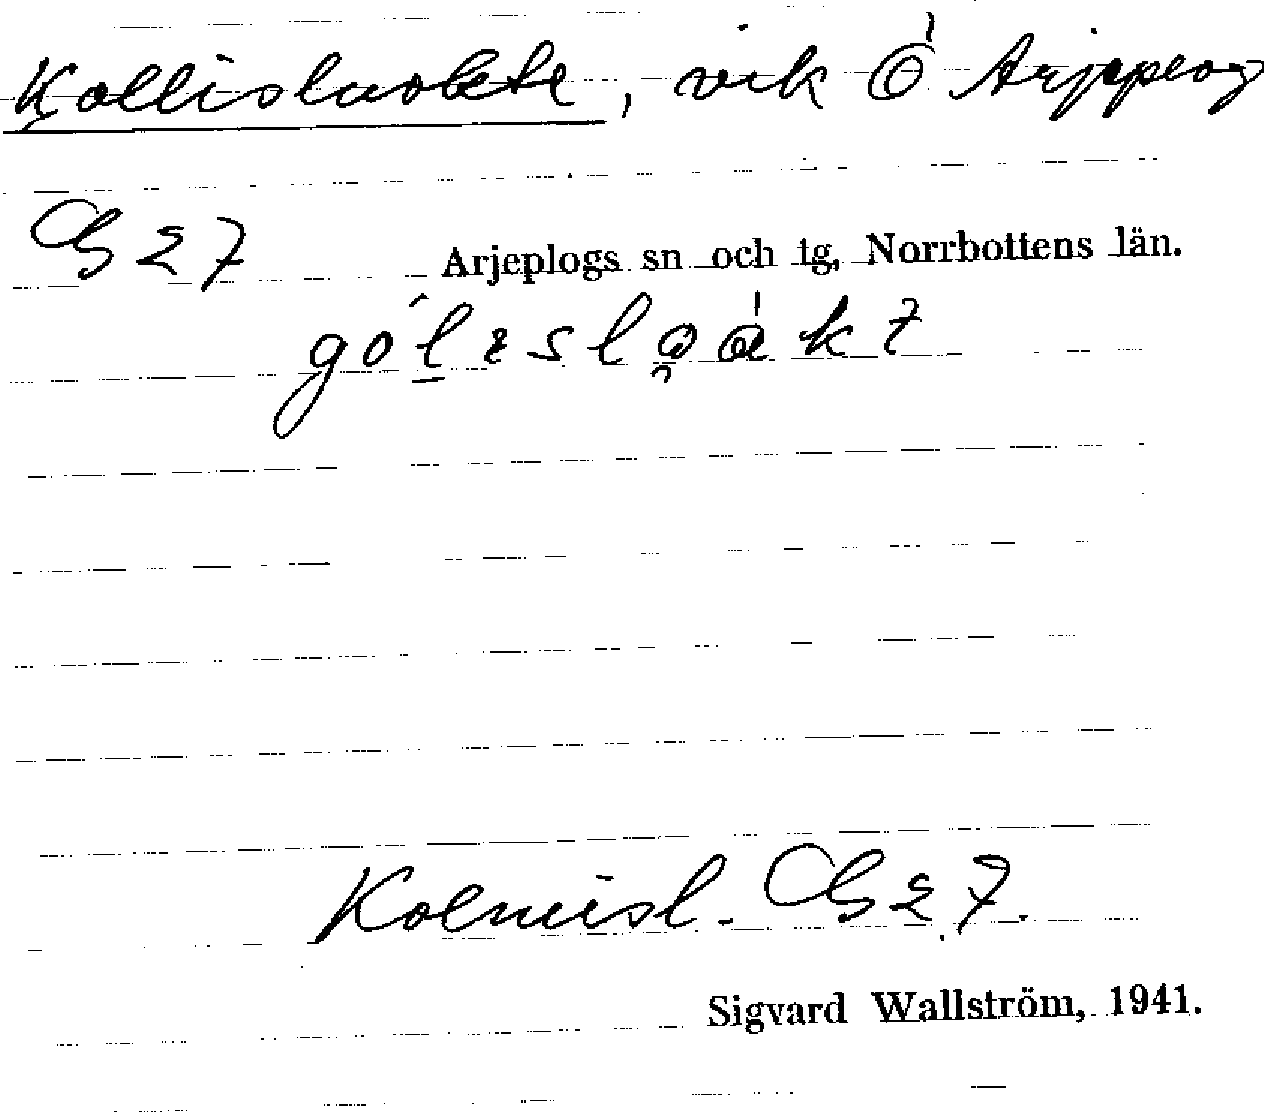 Kollisluokte, vik Ö Arjeplog
G27 Arjeplogs sn och tg, Norrbottens län.
Kolmisl. G27.
Sigvard Wallström, 1941.